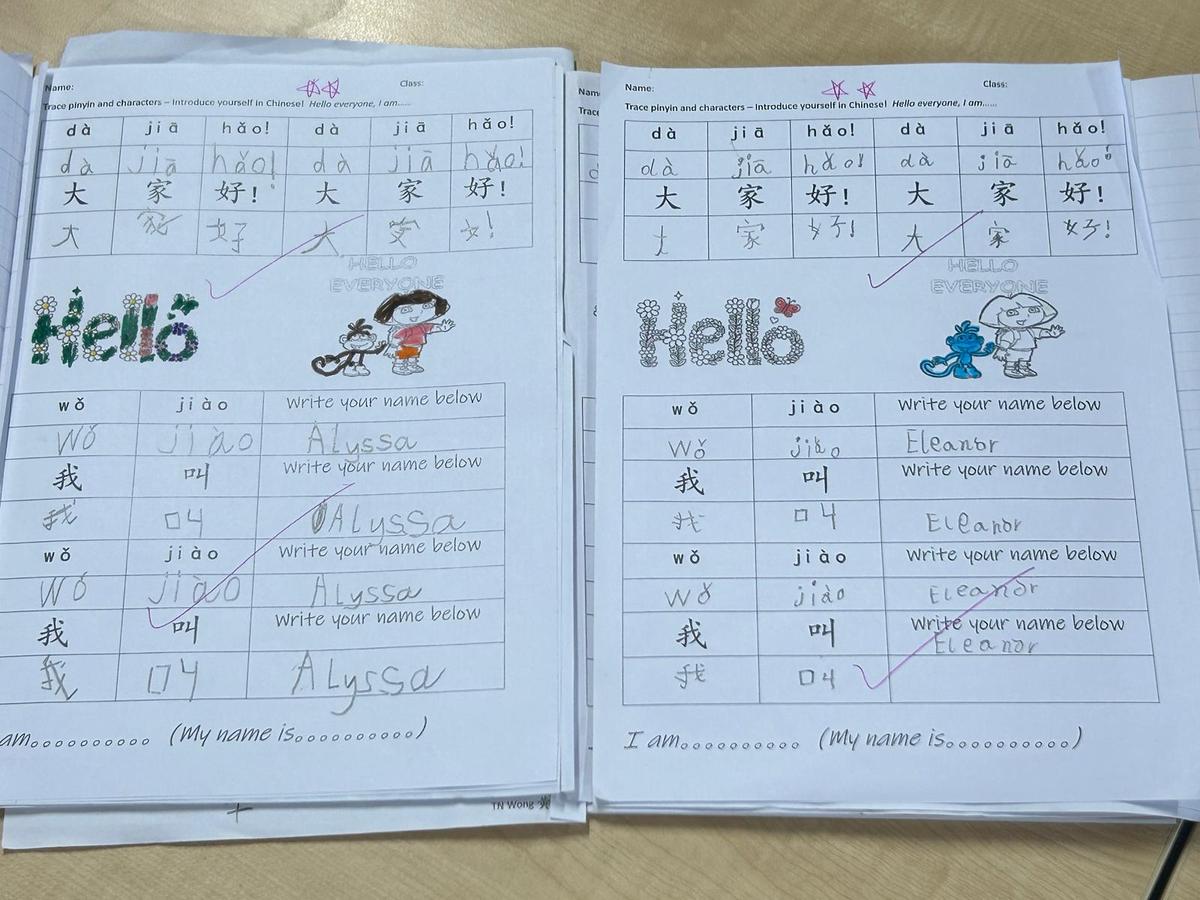 Name: Class:
Trace pinyin and characters – Introduce yourself in Chinese! Hello everyone, I am......
dà jiā hǎo! dà jiā hǎo!
dà jiā hǎo! dà jiā hǎo!
大 家 好! 大 家 好!
大 家 好 大 家 女!
HELLO
EVERYONE
Hello
wǒ jiào Write your name below
wǒ jiào Alyssa
我 叫 Write your name below
我 叫 Alyssa
wǒ jiào Write your name below
wǒ jiào Alyssa
我 叫 Write your name below
我 叫 Alyssa
am.......... (My name is..........)
TN Wong
Name: Class:
Trace pinyin and characters – Introduce yourself in Chinese! Hello everyone, I am......
dà jiā hǎo! dà jiā hǎo!
dà jiā hǎo! dà jiā hǎo!
大 家 好! 大 家 好!
大 家 好! 大 家 好!
HELLO
EVERYONE
Hello
wǒ jiào Write your name below
wǒ jiào Eleanor
我 叫 Write your name below
我 叫 Eleanor
wǒ jiào Write your name below
wǒ jiào Eleanor
我 叫 Write your name below
Eleanor
我 叫
I am.......... (My name is..........)